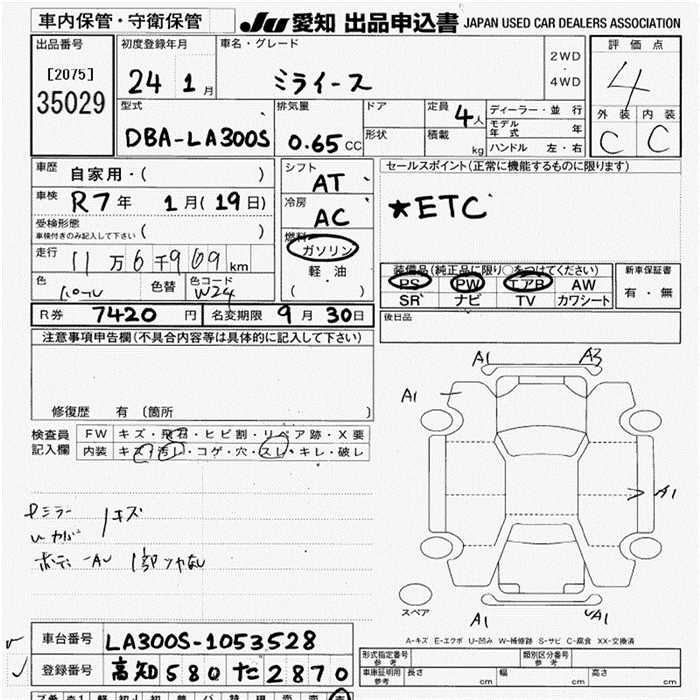 車内保管・守衛保管
JU 愛知 出品申込書 JAPAN USED CAR DEALERS ASSOCIATION
出品番号
[2075]
35029
初度登録年月
24 1月
車名・グレード
ミライース
2WD
・
4WD
評価点
4
外装 内装
C C
型式
DBA-LA300S
排気量
0.65 CC
ドア
形状
定員 4人
積載 kg
ディーラー・並行
モデル年式 年
ハンドル 左・右
車歴 自家用・( )
車検 R7年 1月(19日)
受検形態
車検付きのみ記入して下さい ( )
走行 11万6千969km
色 パール 色替 色コード W24
シフト AT
冷房 AC
燃料 ガソリン
軽油
( )
セールスポイント(正常に機能するものに限ります)
★ETC
装備品(純正品に限り○をつけてください)
PS PW エアB AW
SR ナビ TV カワシート
新車保証書
有・無
R券 7420円 名変期限 9月30日
後日品
注意事項申告欄(不具合内容等は具体的に記入して下さい)
修復歴 有(箇所 )
検査員
記入欄
FW キズ・飛石・ヒビ割・リペア跡・X要
内装 キズ・汚レ・コゲ・穴・スレ・キレ・破レ
A1 A3
A1
A1
A1 A1
スペア
キズ
A-キズ E-エクボ U-凹み W-補修跡 S-サビ C-腐食 XX-交換済
車台番号 LA300S-1053528
登録番号 高知580た2870
形式指定番号
参考
類別区分番号
参考
車庫証明用
参考
長さ cm 幅 cm 高さ cm